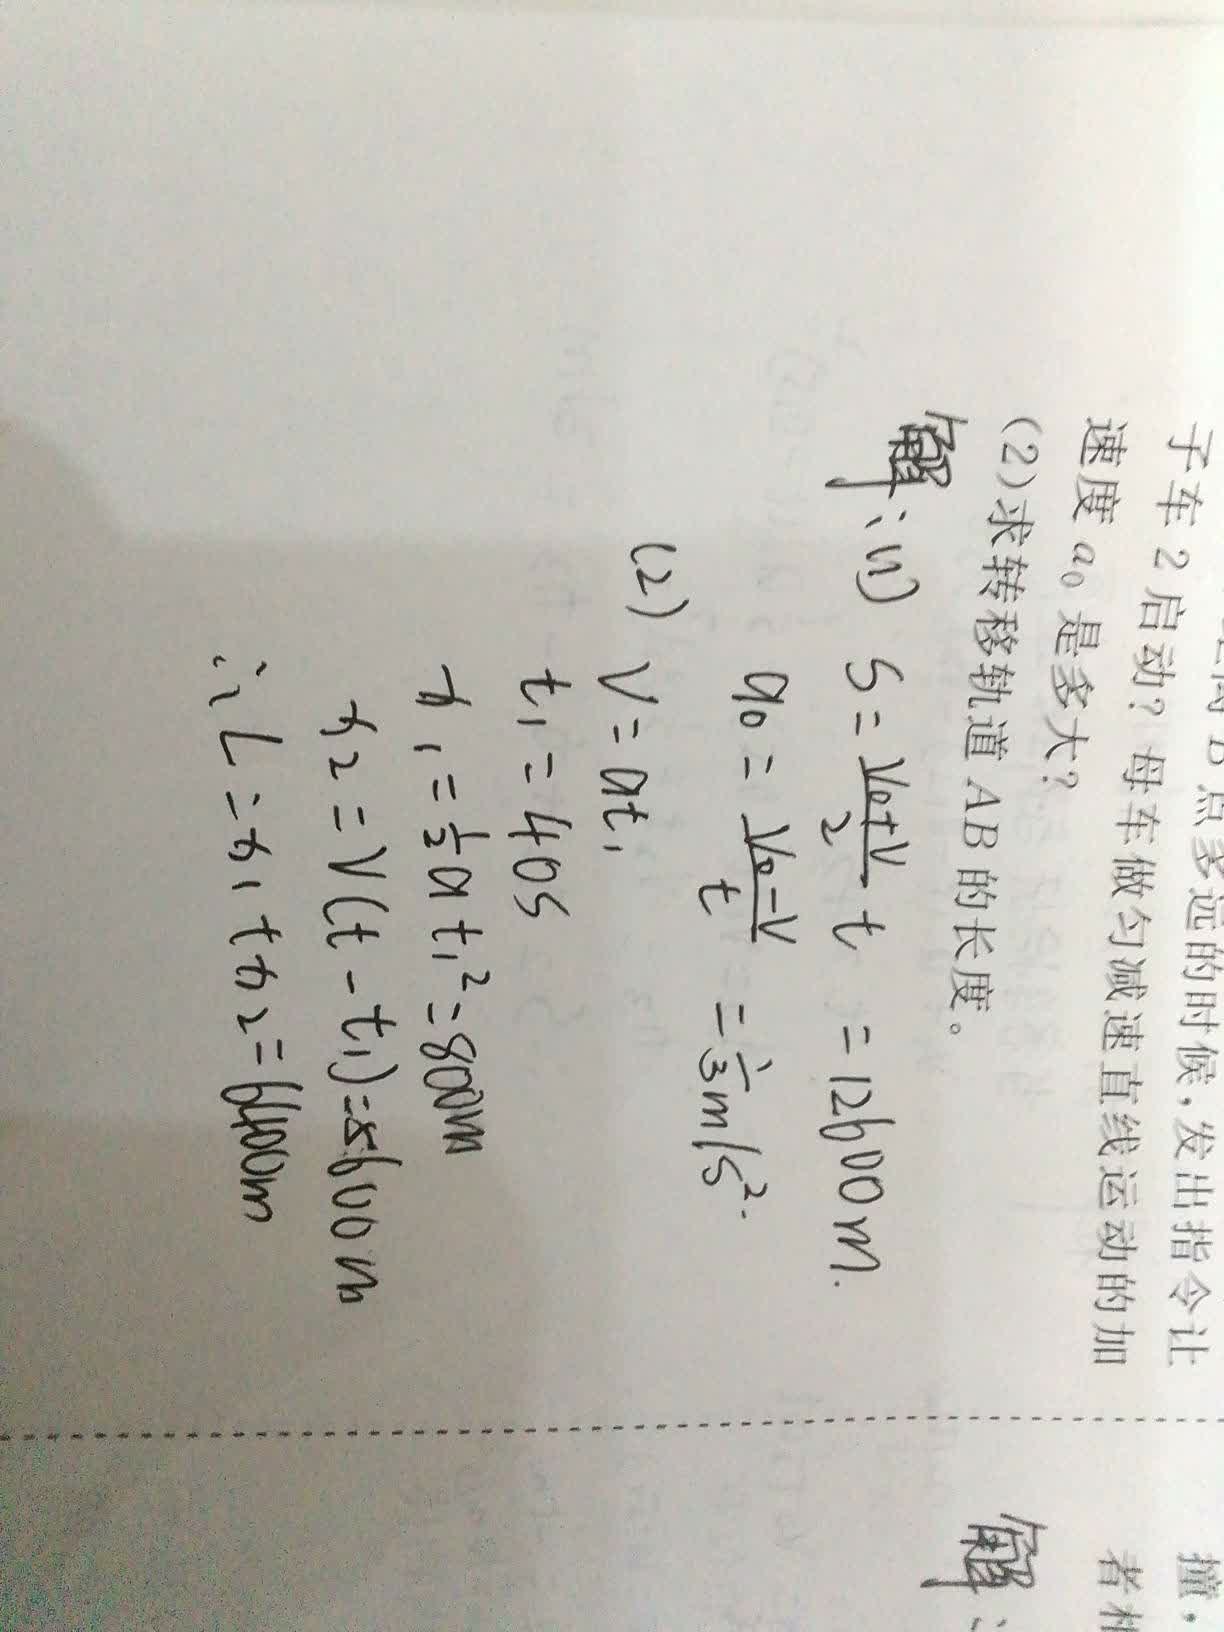 B点多远的时候，发出指令让
子车2启动？母车做匀减速直线运动的加
速度a₀是多大？
(2)求转移轨道AB的长度。
解：(1) S = (V₀+V)/2 t = 12600m.
a₀ = (V₀-V)/t = 1/3 m/s².
(2) V = at₁
t₁ = 40s
x₁ = 1/2 a t₁² = 800m
x₂ = V(t - t₁) = 5600m
∴ L = x₁ + x₂ = 6400m
撞，
者
解：